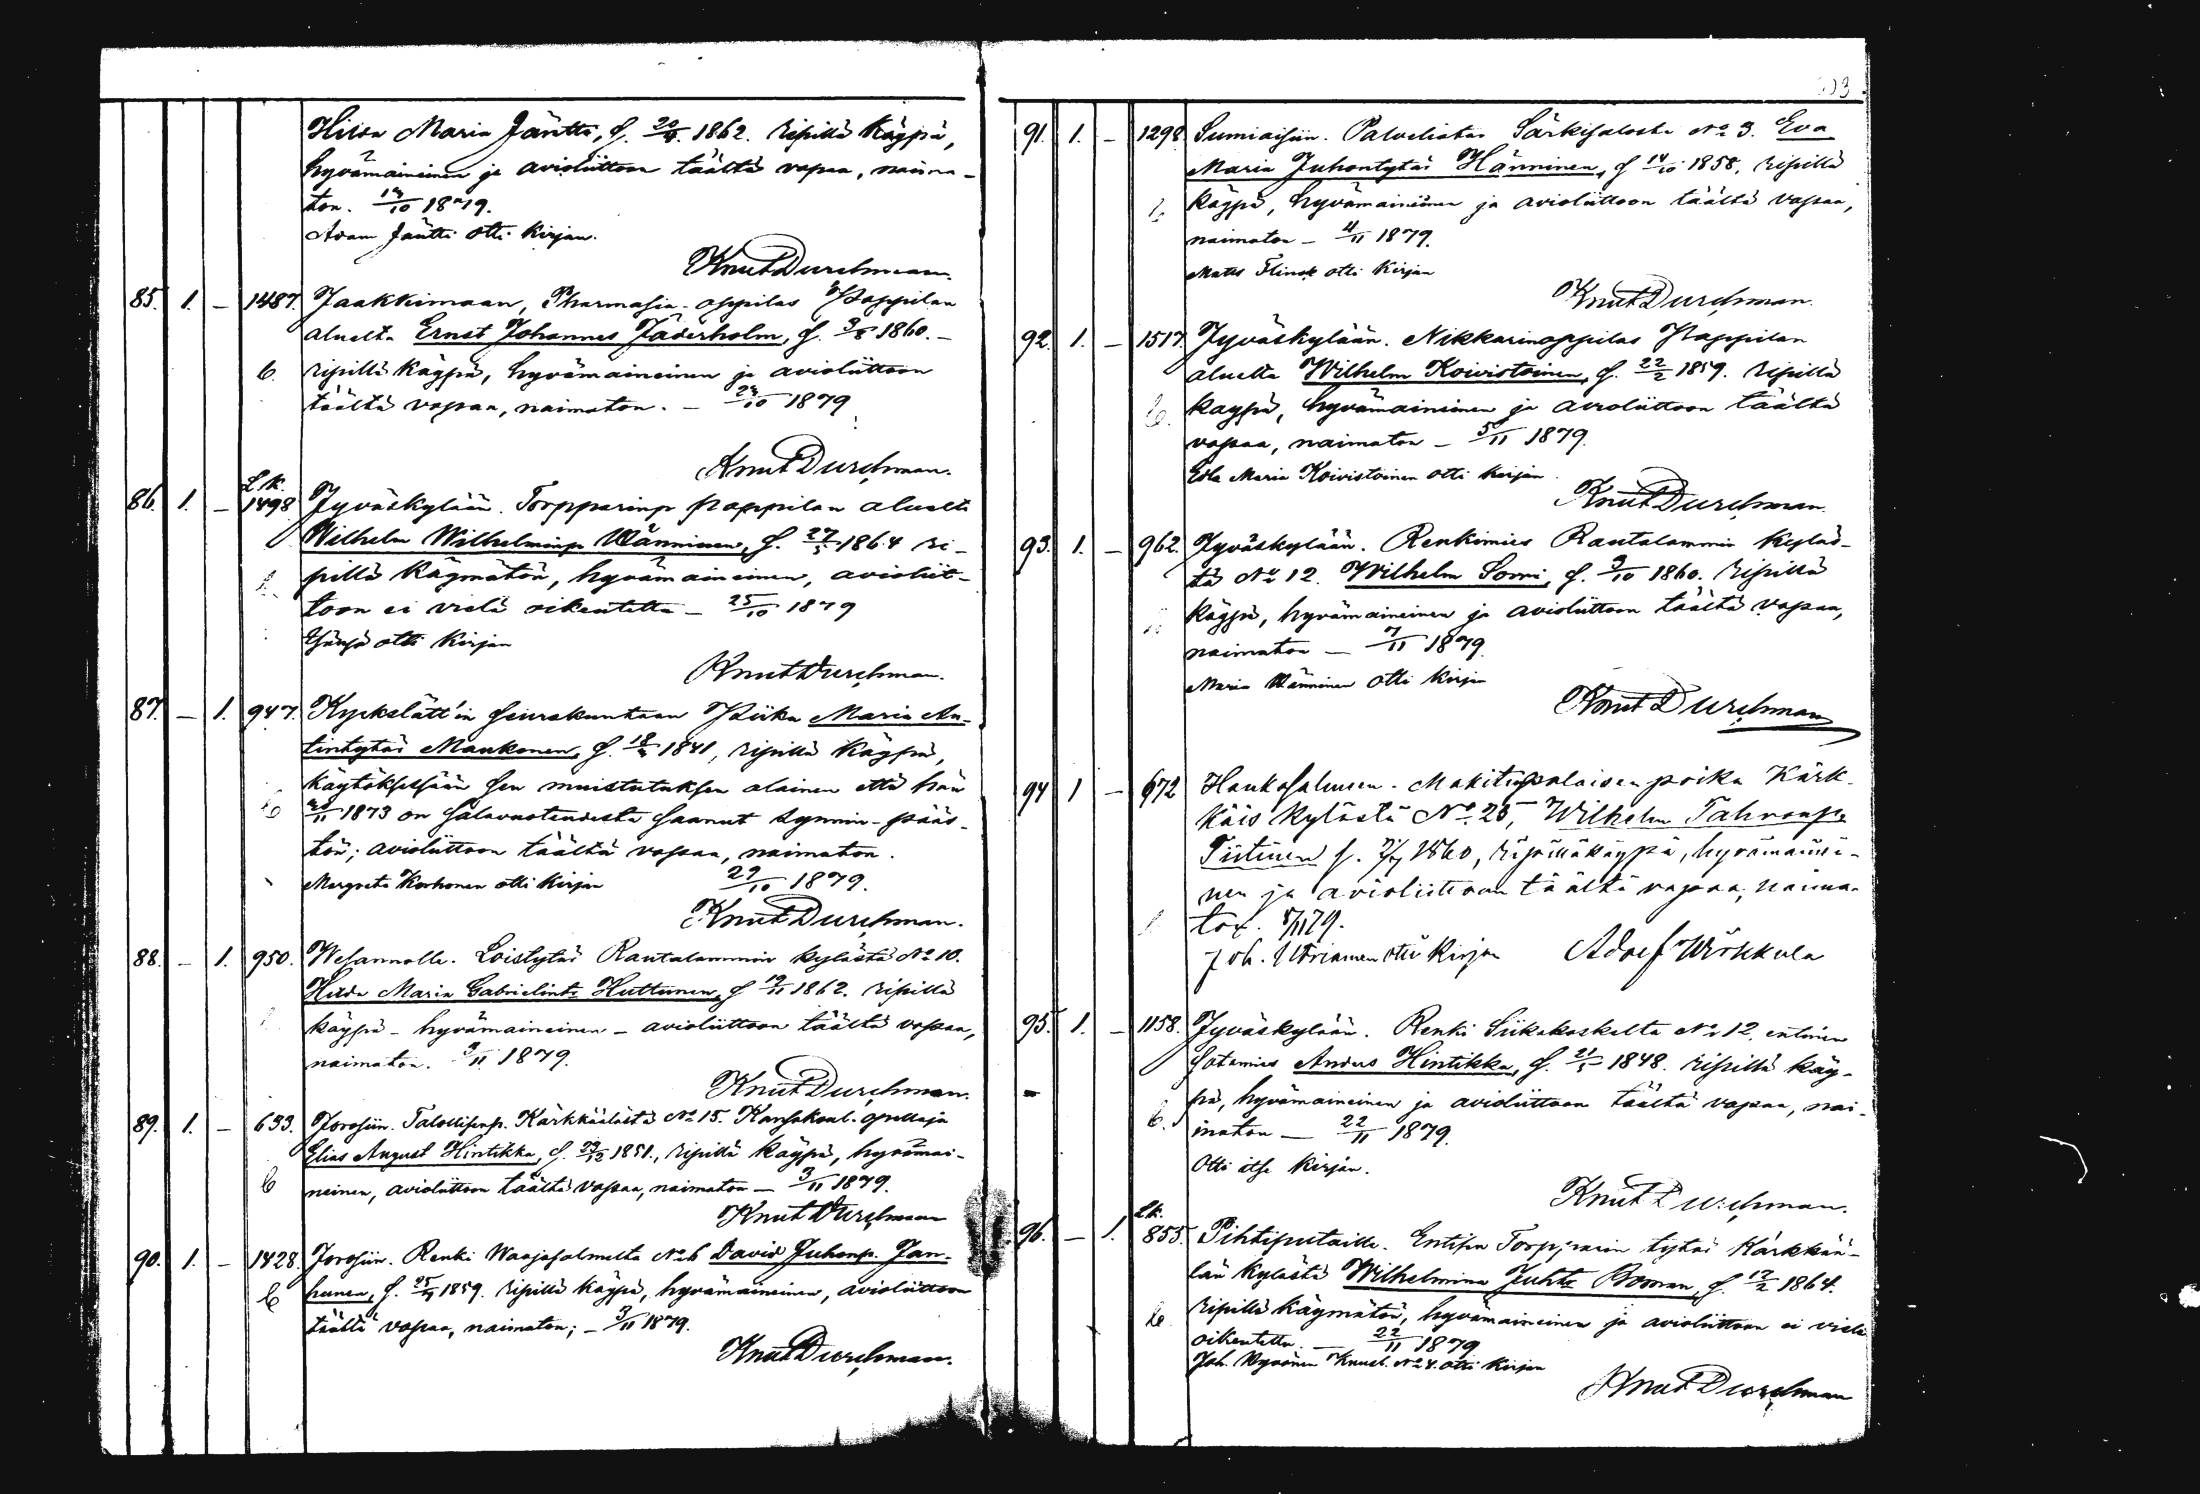 Hilda Maria Jäntti, s. 20/8 1862. ripillä käypä,
hyvämaineinen ja avioliittoon täältä vapaa, naima-
ton. 13/10 1879.
Adam Jäntti otti kirjan.
Knut Durchman.
85. 1. – 1487. Jaakkimaan, Pharmasia-oppilas Pappilan
alueelta Ernst Johannes Jäderholm, s. 3/8 1860. –
ripillä käypä, hyvämaineinen ja avioliittoon
täältä vapaa, naimaton. – 23/10 1879
Knut Durchman.
Lk.
86. 1. – 1498 Jyväskylään. Torpparinp. pappilan alueelta
Wilhelm Wilhelminp. Wänninen, s. 27/5 1864 ri-
pillä käymätön, hyvämaineinen, avioliit-
toon ei vielä oikeutettu – 25/10 1879
otti kirjan
Knut Durchman.
87. – 1. 947. Kyrkslätt'in seurakuntaan Piika Maria An-
tintytär Maukonen, s. 18/ 1841, ripillä käypä,
käytöksessään sen muistutuksen alainen että hän
/11 1873 on salavuoteudesta saanut synnin-pääs-
tön; avioliittoon täältä vapaa, naimaton.
Margreta Korhonen otti kirjan 29/10 1879.
Knut Durchman.
88. – 1. 950. Wesannolle. Loistytär Rautalammin kylästä No 10.
Hilda Maria Gabrielint. Huttunen, s. 19/11 1862. ripillä
käypä – hyvämaineinen – avioliittoon täältä vapaa,
naimaton. 3/11 1879.
Knut Durchman.
89. 1. – 633. Joroisiin. Talollisenp. Kärkkäälästä No 15. Kansakoul. opettaja
Elias August Hintikka, s. 23/12 1851., ripillä käypä, hyvämai-
neinen, avioliittoon täältä vapaa, naimaton – 3/11 1879.
Knut Durchman
90. 1. – 1428. Joroisiin. Renki Waajasalmelta No 6 David Juhonp. Jan-
hunen, s. 25/9 1859. ripillä käypä, hyvämaineinen, avioliittoon
täältä vapaa, naimaton; – 3/11 1879.
Knut Durchman.
91. 1. – 1298 Sumiaisiin. Palveliatar Särkisalosta No 3. Eva
Maria Juhontytär Hänninen, s 14/10 1858, ripillä
käypä, hyvämaineinen ja avioliittoon täältä vapaa,
naimaton – 4/11 1879.
Matts Flink otti kirjan
Knut Durchman.
92. 1. – 1517. Jyväskylään. Nikkarinoppilas Pappilan
alueelta Wilhelm Koivistoinen, s. 22/2 1859. ripillä
käypä, hyvämaineinen ja avioliittoon täältä
vapaa, naimaton – 5/11 1879.
Edla Maria Koivistoinen otti kirjan.
Knut Durchman.
93. 1. – 962. Jyväskylään. Renkimies Rautalammin kyläs-
tä No 12. Wilhelm Somi, s. 3/10 1860. ripillä
käypä, hyvämaineinen ja avioliittoon täältä vapaa,
naimaton – 7/11 1879.
Maria Wänninen otti kirjan
Knut Durchman
94 1 – 672 Hankasalmen. Mäkitupalaisen poika Kärk-
käis kylästä No 25, Wilhelm Tahvonp.
Tiitinen s. 7/7 1860, ripilläkäypä, hyvämainei-
nen ja avioliittoon täältä vapaa, naima-
ton. 8/11 79.
Joh. otti kirjan Adolf Wirkkula
95. 1. – 1158. Jyväskylään. Renki Siikakoskelta No 12. entinen
sotamies Anders Hintikka, s. 21/5 1848. ripillä käy-
pä, hyvämaineinen ja avioliittoon täältä vapaa, nai-
maton – 22/11 1879.
Otti itse kirjan.
Knut Durchman.
Lk.
96. – 1. 855. Pihtiputaille. Entisen Torpparin tytär Kärkkää-
län kylästä Wilhelmina Juhtr Boman, s. 17/2 1864.
ripillä käymätön, hyvämaineinen ja avioliittoon ei vielä
oikeutettu. – 22/11 1879
Joh. Knuul. No 4. otti kirjan
Knut Durchman